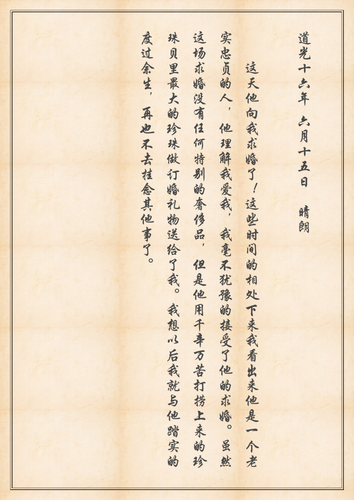 道光十六年 六月十五日 晴朗
这天他向我求婚了！这些时间的相处下来我看出来他是一个老
实忠贞的人，他理解我爱我，我毫不犹豫的接受了他的求婚。虽然
这场求婚没有任何特别的奢侈品，但是他用千辛万苦打捞上来的珍
珠贝里最大的珍珠做订婚礼物送给了我。我想以后我就与他踏实的
度过余生，再也不去挂念其他事了。